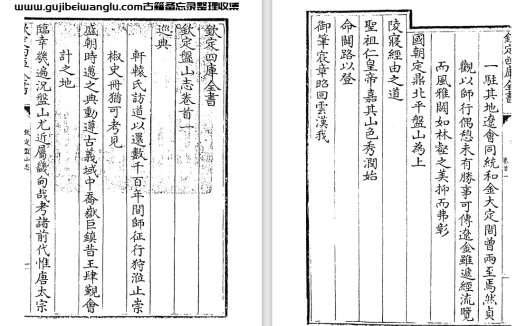 www.gujibeiwanglu.com古籍备忘录整理收集
欽定四庫全書
欽定盤山志卷首一
巡典
軒轅氏訪道以還數千百年間師征行狩涖止崇
椒史冊猶可考見
盛朝時邁之典動遵古義域中喬嶽巨鎮昔王肆覲會
計之地
臨幸幾遍況盤山尤近屬畿甸哉考諸前代惟唐太宗
欽定盤山志
欽定四庫全書
卷首一
一駐其地遼會同統和金大定間曾兩至焉然貞
觀以師行偶憩未有勝事可傳遼金雖遞經流覽
而風雅闕如林壑之美抑而弗彰
國朝定鼎北平盤山為上
陵寢經由之道
聖祖仁皇帝嘉其山色秀潤始
命闢路以登
御筆宸章昭回雲漢我